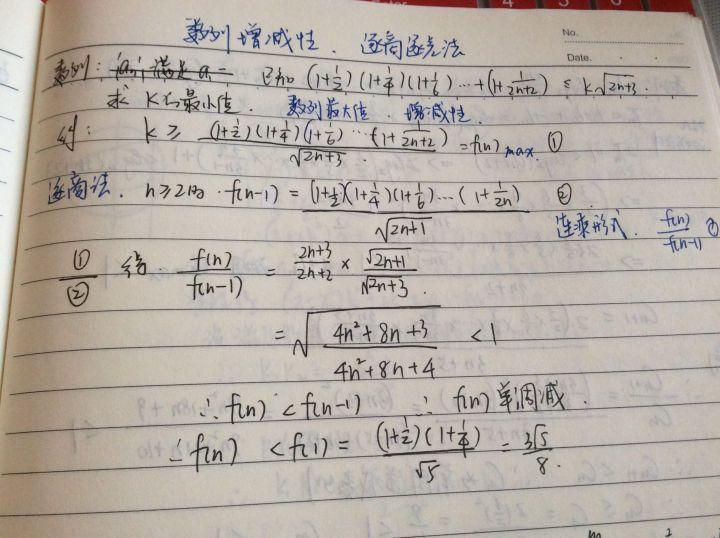 No.
Date.
数列增减性、逐商逐差法
数列: {aₙ}满足a₁= 已知 (1+1/2)(1+1/4)(1+1/6)…+(1+1/(2n+2)) ≤ k√(2n+3).
求 K的最小值. 数列最大值. 增减性.
k ≥ (1+1/2)(1+1/4)(1+1/6)…(1+1/(2n+2)) / √(2n+3) = f(n)max. ①
逐商法. n≥2时. f(n-1) = (1+1/2)(1+1/4)(1+1/6)…(1+1/2n) / √(2n+1) ②
连乘形式. f(n)/f(n-1)
①/② 得 f(n)/f(n-1) = (2n+3)/(2n+2) × √(2n+1)/√(2n+3).
= √((4n²+8n+3)/(4n²+8n+4)) < 1
∴ f(n) < f(n-1) ∴ f(n) 单调减.
∴ f(n) < f(1) = (1+1/2)(1+1/4)/√5 = 3√5/8.